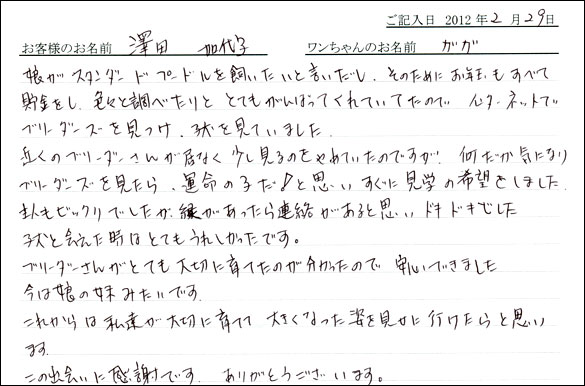 ご記入日 2012年2月29日
お客様のお名前 澤田 加代子 ワンちゃんのお名前 ガガ
娘がスタンダードプードルを飼いたいと言いだし、そのためにお年玉もすべて
貯金をし、色々と調べたりと とてもがんばってくれていてたので インターネットで
ブリーダーズを見つけ、子犬を見ていました。
近くのブリーダーさんが居なく少し見るのをやめていたのですが、何だか気になり
ブリーダーズを見たら、運命の子だ♪と思いすぐに見学の希望をしました。
主人もビックリでしたが、縁があったら連絡があると思いドキドキでした
子犬と会えた時はとてもうれしかったです。
ブリーダーさんがとても大切に育てたのが分かったので 安心できました
今は娘の妹みたいです。
これからは私達が大切に育てて 大きくなった姿を見せに行けたらと思い
ます。
この出会いに感謝です。 ありがとうございます。